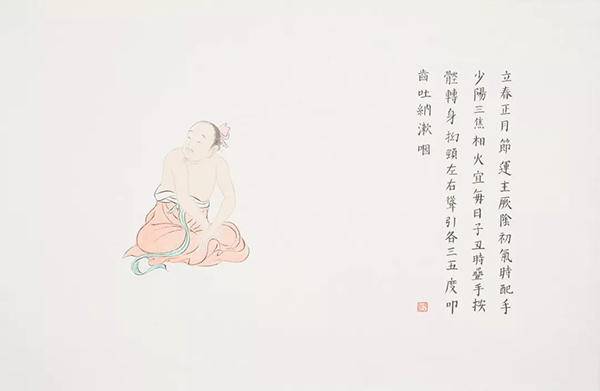 立春正月節運主厥陰初氣時配手
少陽三焦相火宜每日子丑時疊手按
髀轉身拗頸左右聳引各三五度叩
齒吐納漱咽